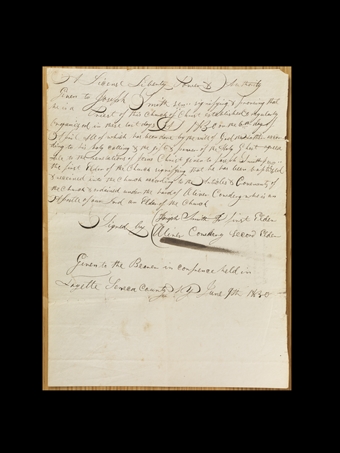 A License Liberty Power & Authority
Given to Joseph Smith Sen. signifying & proveing that
he is a Priest of this Church of Christ established & regularly
Organized in these last days AD 1830 on the 6th day of
April all of which has been done by the will of God the father accor
ding to his holy calling & the gift & power of the Holy Ghost agreea
ble to the revelations of Jesus Christ given to Joseph Smith Jun
the first Elder of the Church signifying that he has been baptized
& received into the Church according to the Articles & Covenants of
the Church & ordained under the hand of Oliver Cowdery who is an
Apostle of our Lord an Elder of the Church
Joseph Smith Jr first Elder
Signed by Oliver Cowdery Second Elder
Given to the Bearer in conference held in
Fayette Seneca County NY June 9th 1830